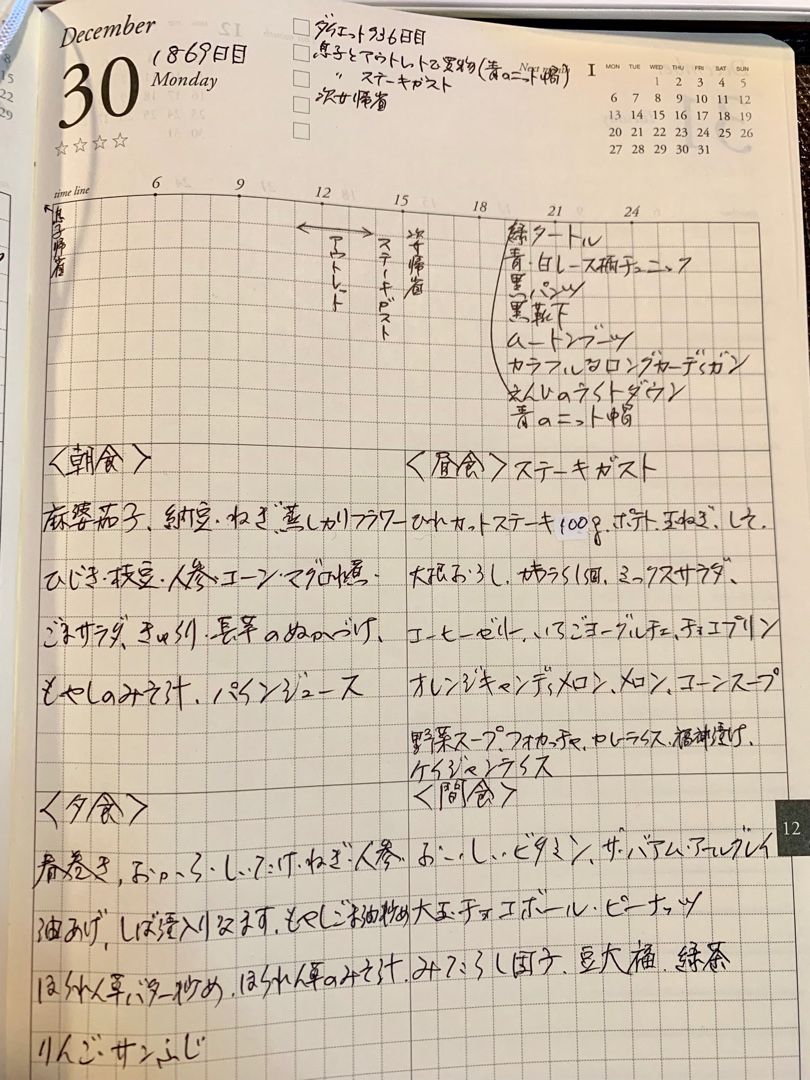 December
30
1869日目
Monday
☆☆☆☆
ダイエット936日目
息子とアウトレットで買物(青のニット帽)
〃 ステーキガスト
次女帰省
Next month
1
MON TUE WED THU FRI SAT SUN
1 2 3 4 5
6 7 8 9 10 11 12
13 14 15 16 17 18 19
20 21 22 23 24 25 26
27 28 29 30 31
time line 6 9 12 15 18 21 24
息子帰省
アウトレット
ステーキガスト
次女帰省
緑タートル
青・白レース柄チュニック
黒パンツ
黒靴下
ムートンブーツ
カラフルなロングカーディガン
えんじのライトダウン
青のニット帽
<朝食>
麻婆茄子、納豆・ねぎ、蒸しカリフラワー
ひじき・枝豆・人参・コーン・マグロ水煮・
ごまサラダ、きゅうり・長芋のぬかづけ、
もやしのみそ汁、パインジュース
<昼食>ステーキガスト
ひれカットステーキ100g、ポテト、玉ねぎ、しそ、
大根おろし、ミックスサラダ、
コーヒーゼリー、いちごヨーグルチェ、チョコプリン
オレンジキャンディメロン、メロン、コーンスープ
野菜スープ、フォカッチャ、カレーライス、福神漬け、
ケイジャンライス
<夕食>
春巻き、おから・しいたけ・ねぎ・人参・
油あげ、しば漬入りなます、もやしごま油炒め
ほうれん草バター炒め、ほうれん草のみそ汁、
りんご・サンふじ
<間食>
おいしいビタミン、ザ・バアム・アールグレイ
大玉チョコボール・ピーナッツ
みたらし団子、豆大福、緑茶
12